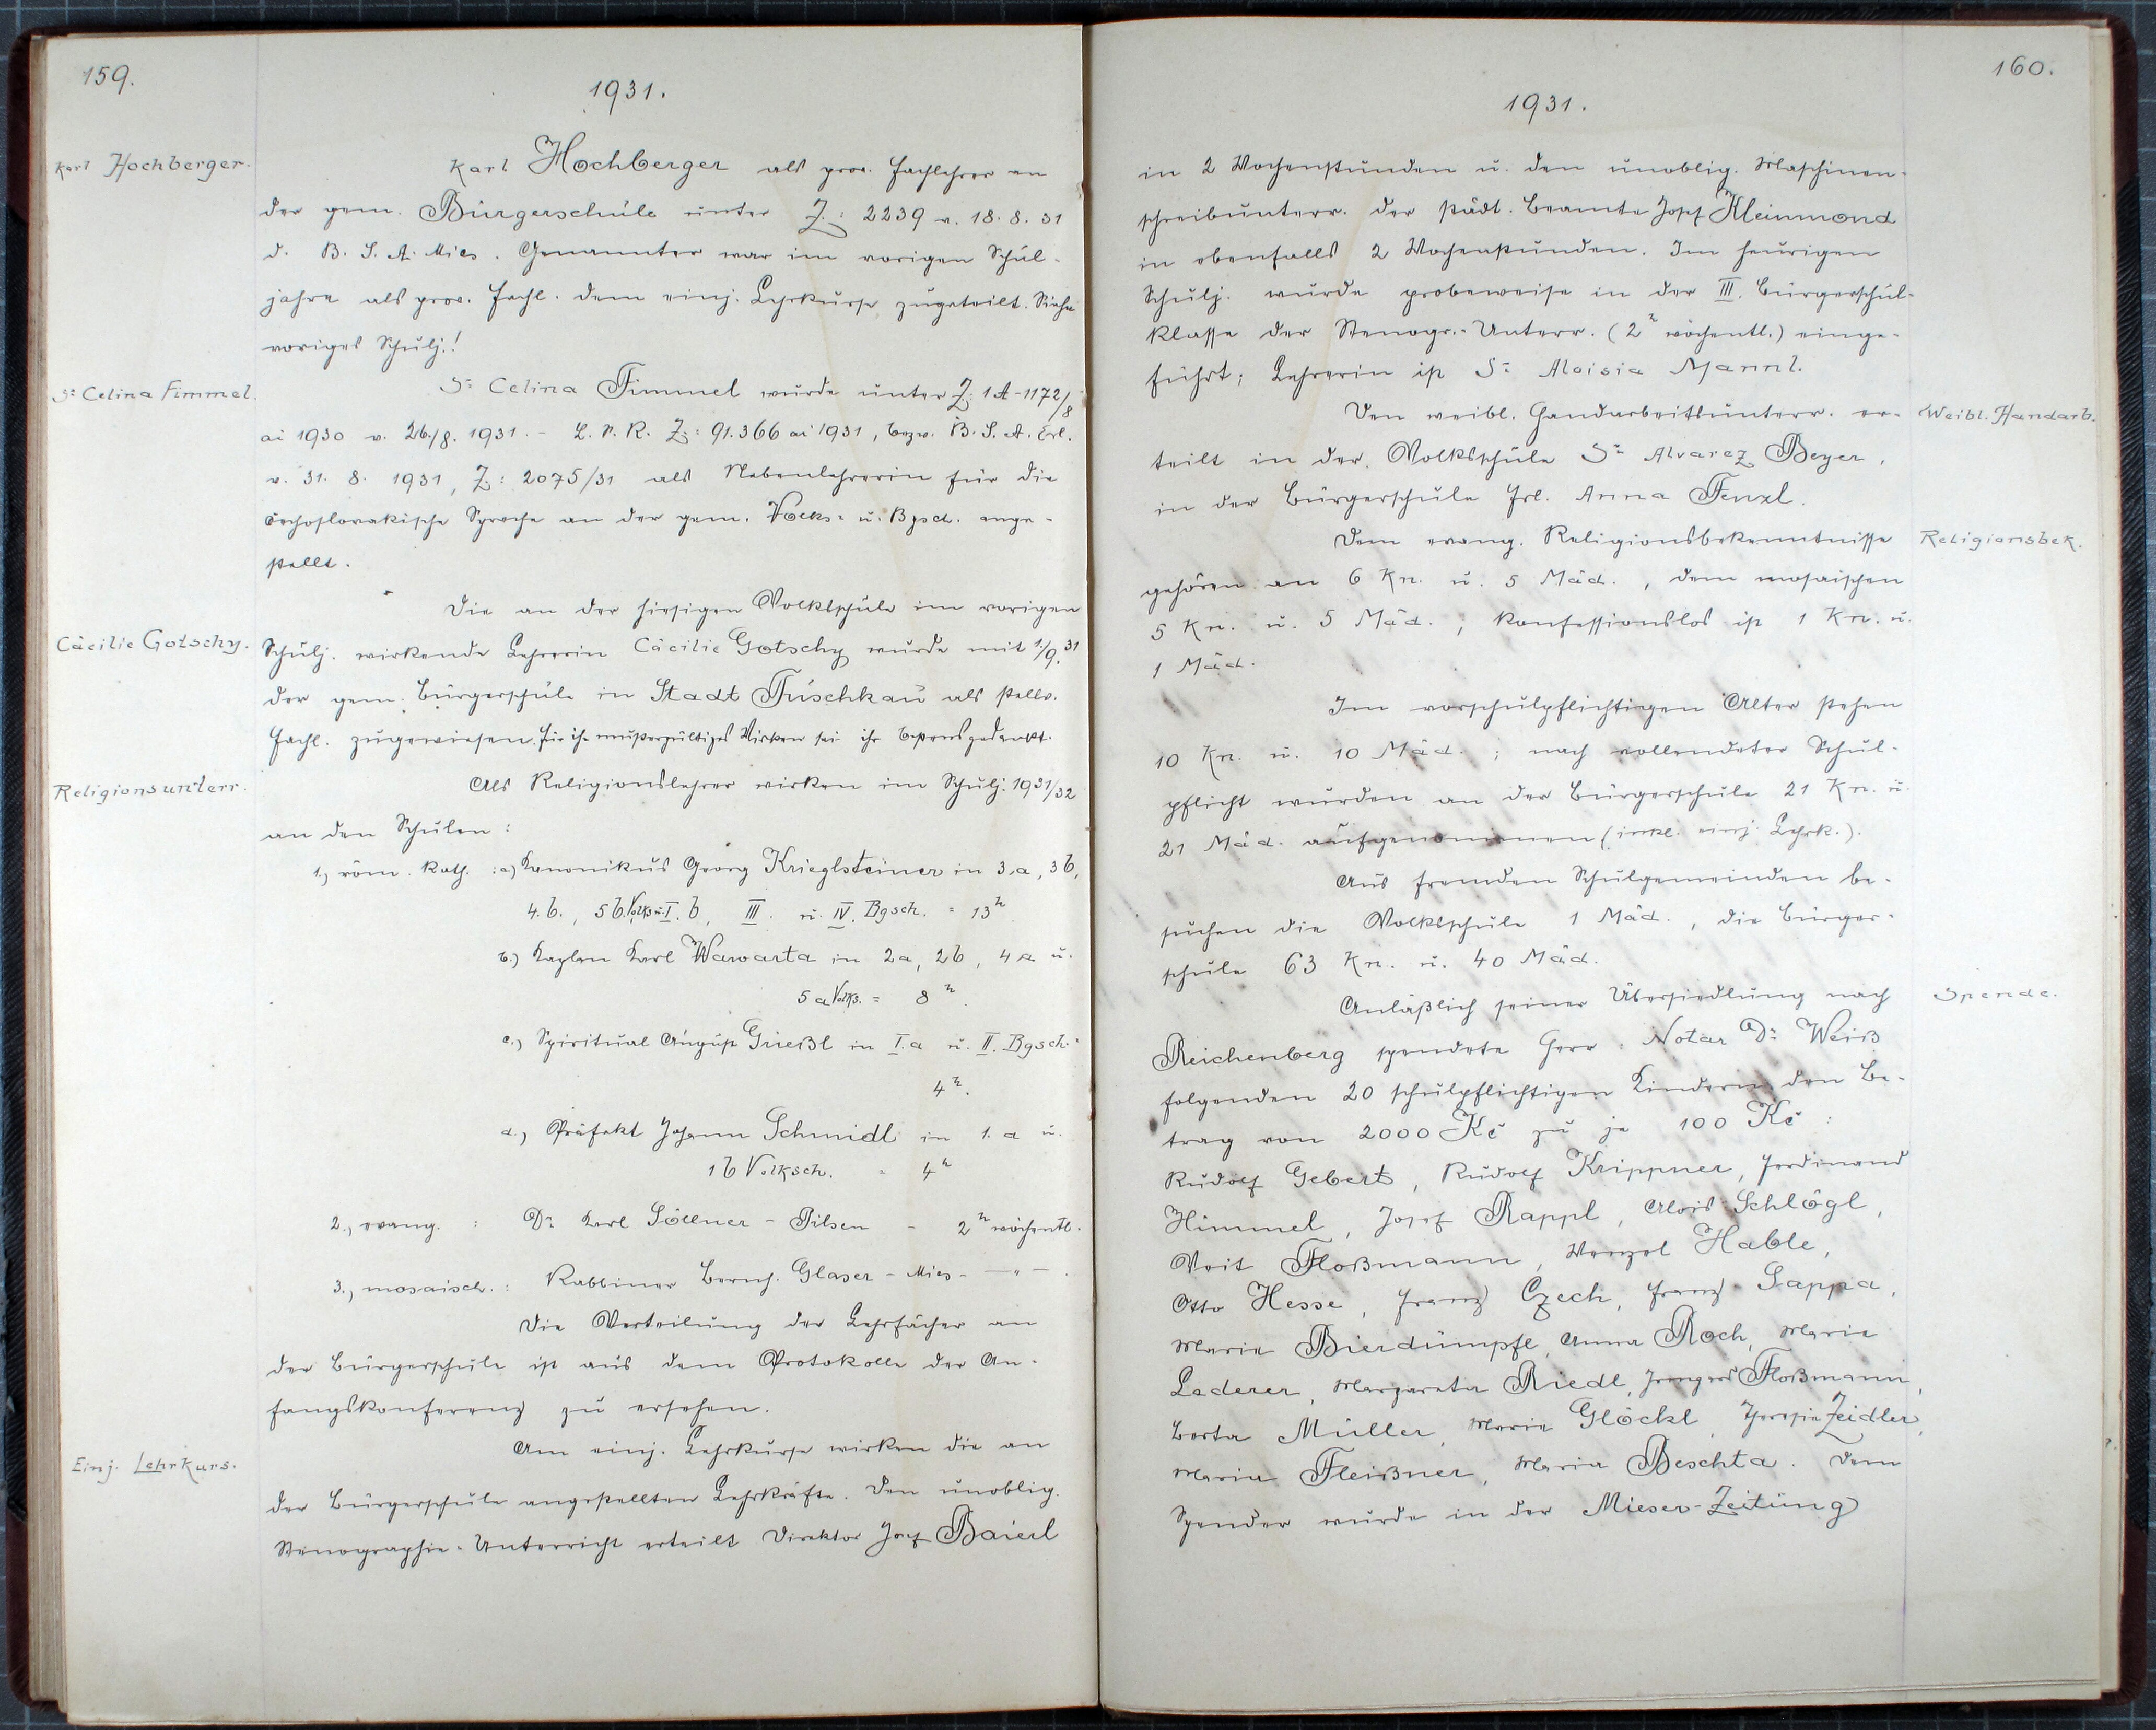 159.
1931.
Karl Hochberger.
Karl Hochberger als prov. Fachlehrer an
der gem. Bürgerschule unter Z.: 2239 v. 18. 8. 31
d. B. S. A. Mies. Genannter war im vorigen Schul-
jahre als prov. Fachl. dem einj. Lehrkurse zugeteilt. Siehe
voriges Schulj.!
Sr. Celina Fimmel.
Sr. Celina Fimmel wurde unter Z: 1A-1172/8
ai 1930 v. 26./8. 1931. - L. S. R. Z: 91.366 ai 1931, bezw. B. S. A. Erl.
v. 31. 8. 1931, Z.: 2075/31 als Nebenlehrerin für die
čechoslovakische Sprache an der gem. Volks- u. Bgsch. ange-
stellt.
Die an der hiesigen Volksschule im vorigen
Cäcilie Gotschy.
Schulj. wirkende Lehrerin Cäcilie Gotschy wurde mit 1./9. 31
der gem. Bürgerschule in Stadt Tuschkau als stellv.
Fachl. zugewiesen. Für ihr mustergültiges Wirken sei ihr bestens gedankt.
Religionsunterr.
Als Religionslehrer wirken im Schulj. 1931/32
an den Schulen:
1.) röm. kath.: a) Kanonikus Georg Krieglsteiner in 3.a, 3b,
4.b., 5b. Volks u. I. b, III. u. IV. Bgsch. = 13 h
b.) Kaplan Karl Wawarta in 2a, 2b, 4a u.
5a Volks. = 8 h.
c.) Spiritual August Grießl in I.a u. II. Bgsch. =
4 h.
d.) Präfekt Johann Schmidl in 1. a u.
1b Volksch. = 4 h
2., evang. : Dr. Karl Söllner - Pilsen - 2 h wöchentl.
3., mosaisch. : Rabbiner Bernh. Glaser - Mies - — " — .
Die Verteilung der Lehrfächer an
der Bürgerschule ist aus dem Protokolle der An-
fangskonferenz zu ersehen.
Einj. Lehrkurs.
Am einj. Lehrkurse wirken die an
der Bürgerschule angestellten Lehrkräfte. Den unoblig.
Stenographie-Unterricht erteilt Direktor Josef Baierl
160.
1931.
in 2 Wochenstunden u. den unoblig. Maschinen-
schreibunterr. der städt. Beamte Josef Kleinmond
in ebenfalls 2 Wochenstunden. Im heurigen
Schulj. wurde probeweise in der III. Bürgerschul-
klasse der Stenogr.-Unterr. (2 h wöchentl.) einge-
führt; Lehrerin ist Sr. Aloisia Mannl.
Den weibl. Handarbeitsunterr. er-
Weibl. Handarb.
teilt in der Volksschule Sr. Alvarez Beyer,
in der Bürgerschule Frl. Anna Fenzl.
Dem evang. Religionsbekenntnisse
Religionsbek.
gehören an 6 Kn. u. 5 Mäd., dem mosaischen
5 Kn. u. 5 Mäd.; konfessionslos ist 1 Kn. u.
1 Mäd.
Im vorschulpflichtigen Alter stehen
10 Kn. u. 10 Mäd.; nach vollendeter Schul-
pflicht wurden an der Bürgerschule 21 Kn. u.
21 Mäd. aufgenommen (inkl. einj. Lehrk.).
Aus fremden Schulgemeinden be-
suchen die Volksschule 1 Mäd., die Bürger-
schule 63 Kn. u. 40 Mäd.
Anläßlich seiner Übersiedlung nach
Spende.
Reichenberg spendete Herr Notar Dr. Weiß
folgenden 20 schulpflichtigen Kindern den Be-
trag von 2000 Kč zu je 100 Kč :
Rudolf Gebert, Rudolf Krippner, Ferdinand
Himmel, Josef Rappl, Alois Schlögl,
Veit Floßmann, Wenzel Hable,
Otto Hesse, Franz Czech, Franz Sappa,
Marie Bierdümpfl, Anna Roch, Marie
Lederer, Margareta Riedl, Irmgard Floßmann,
Berta Müller, Marie Glöckl, Theresia Zeidler,
Marie Fleißner, Maria Beschta. Dem
Spender wurde in der Mieser-Zeitung